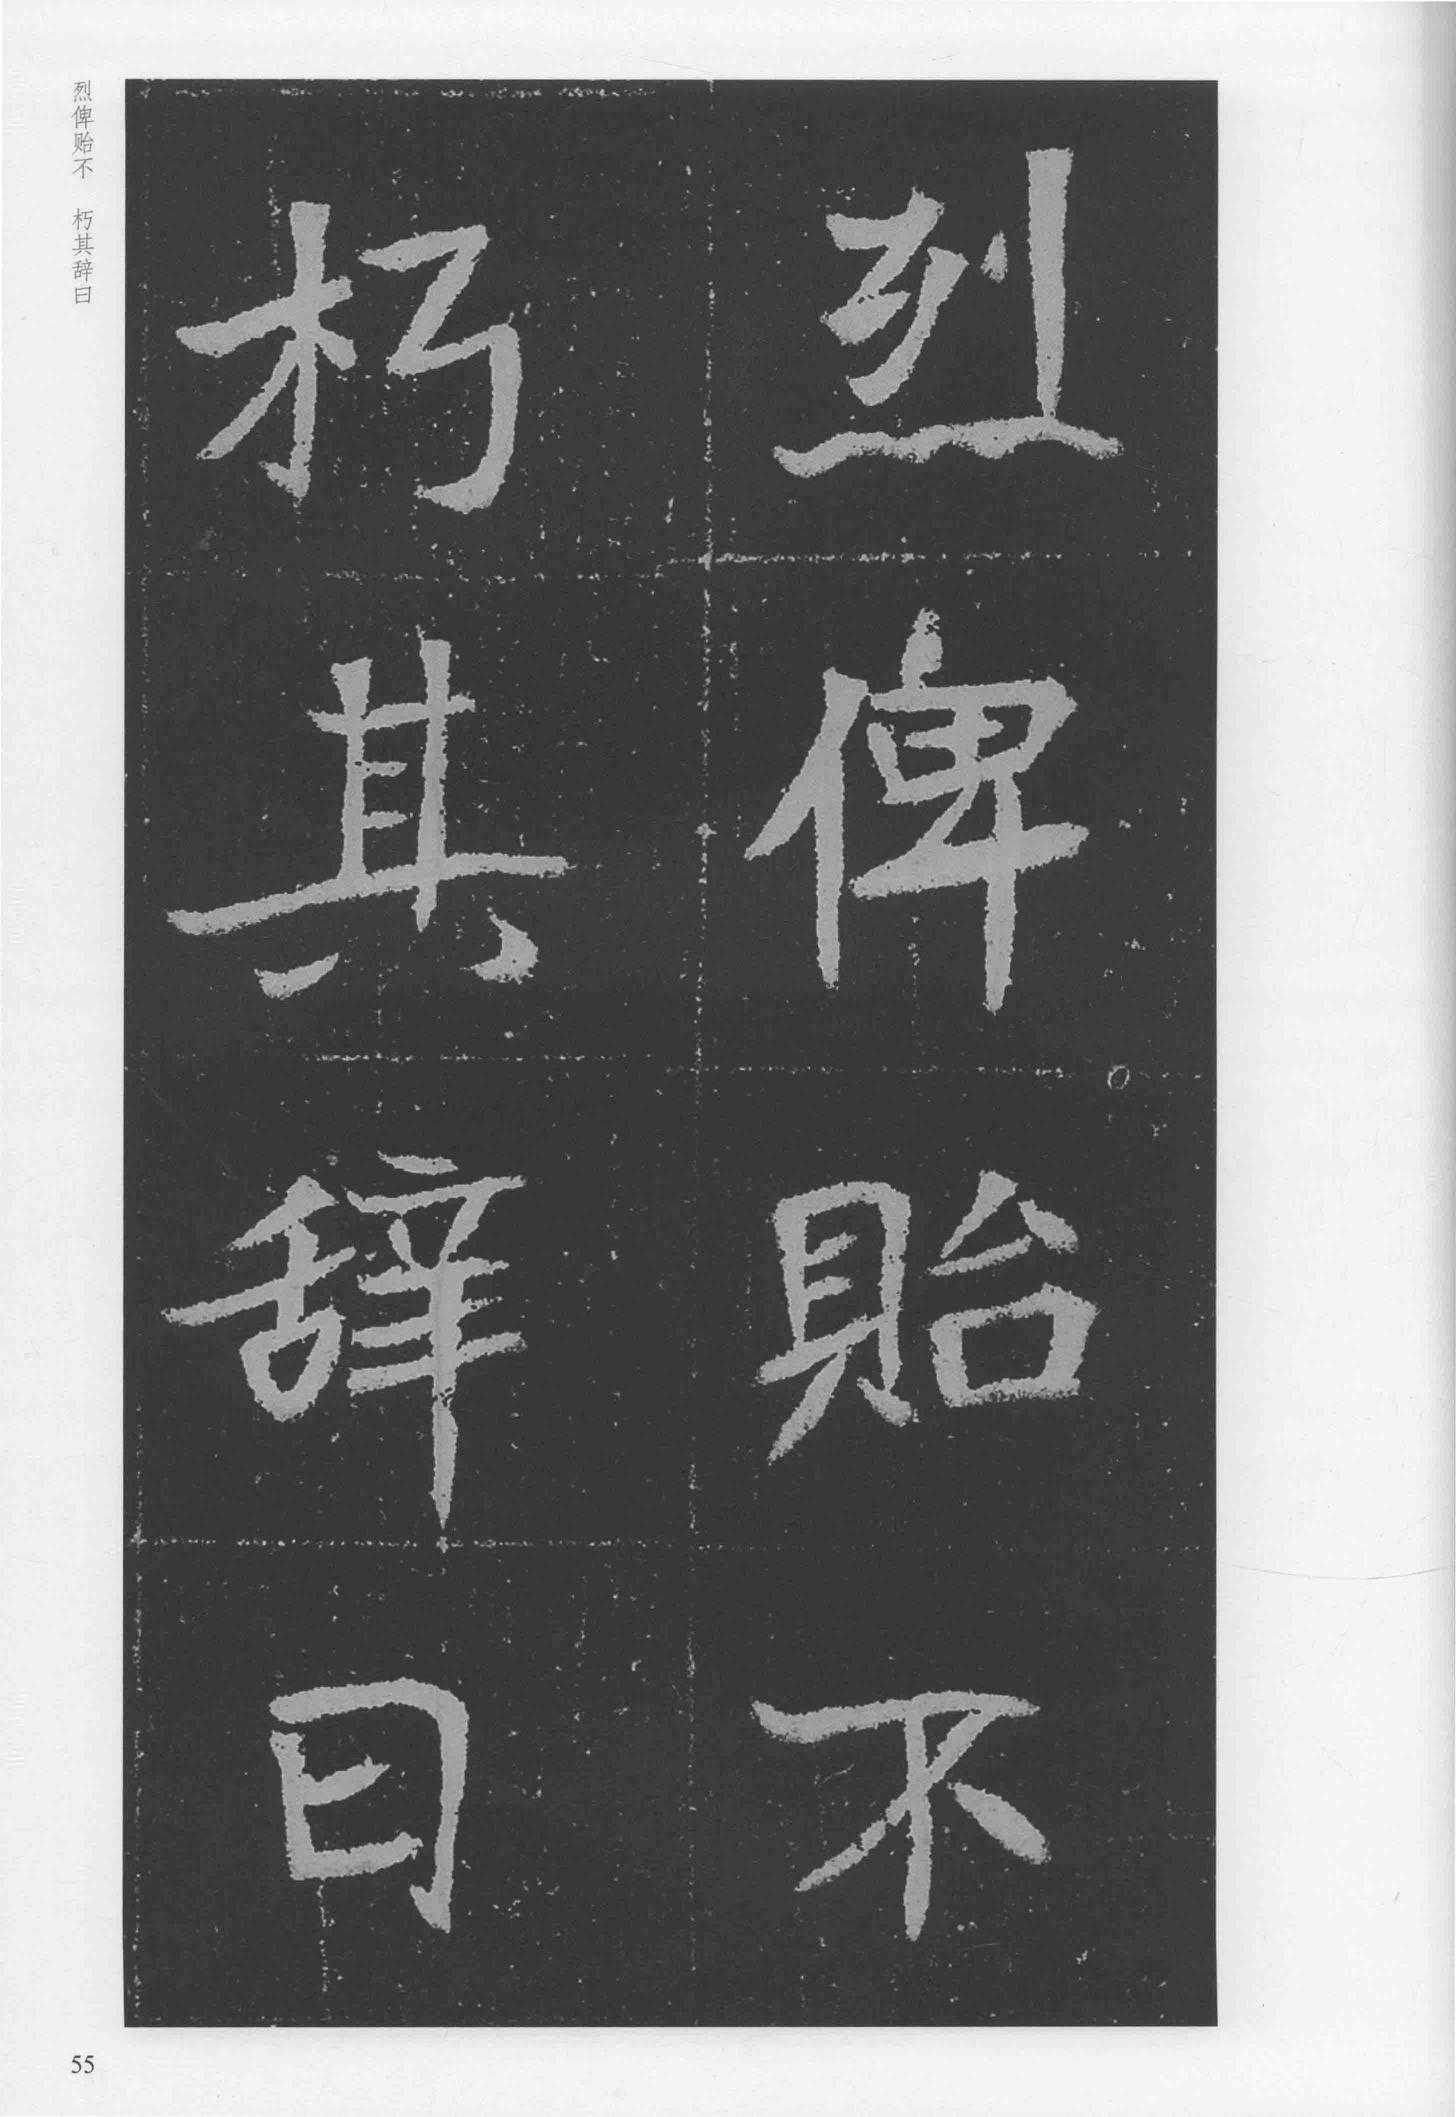 烈俾貽不
朽其辞曰
烈俾贻不　朽其辞曰
55